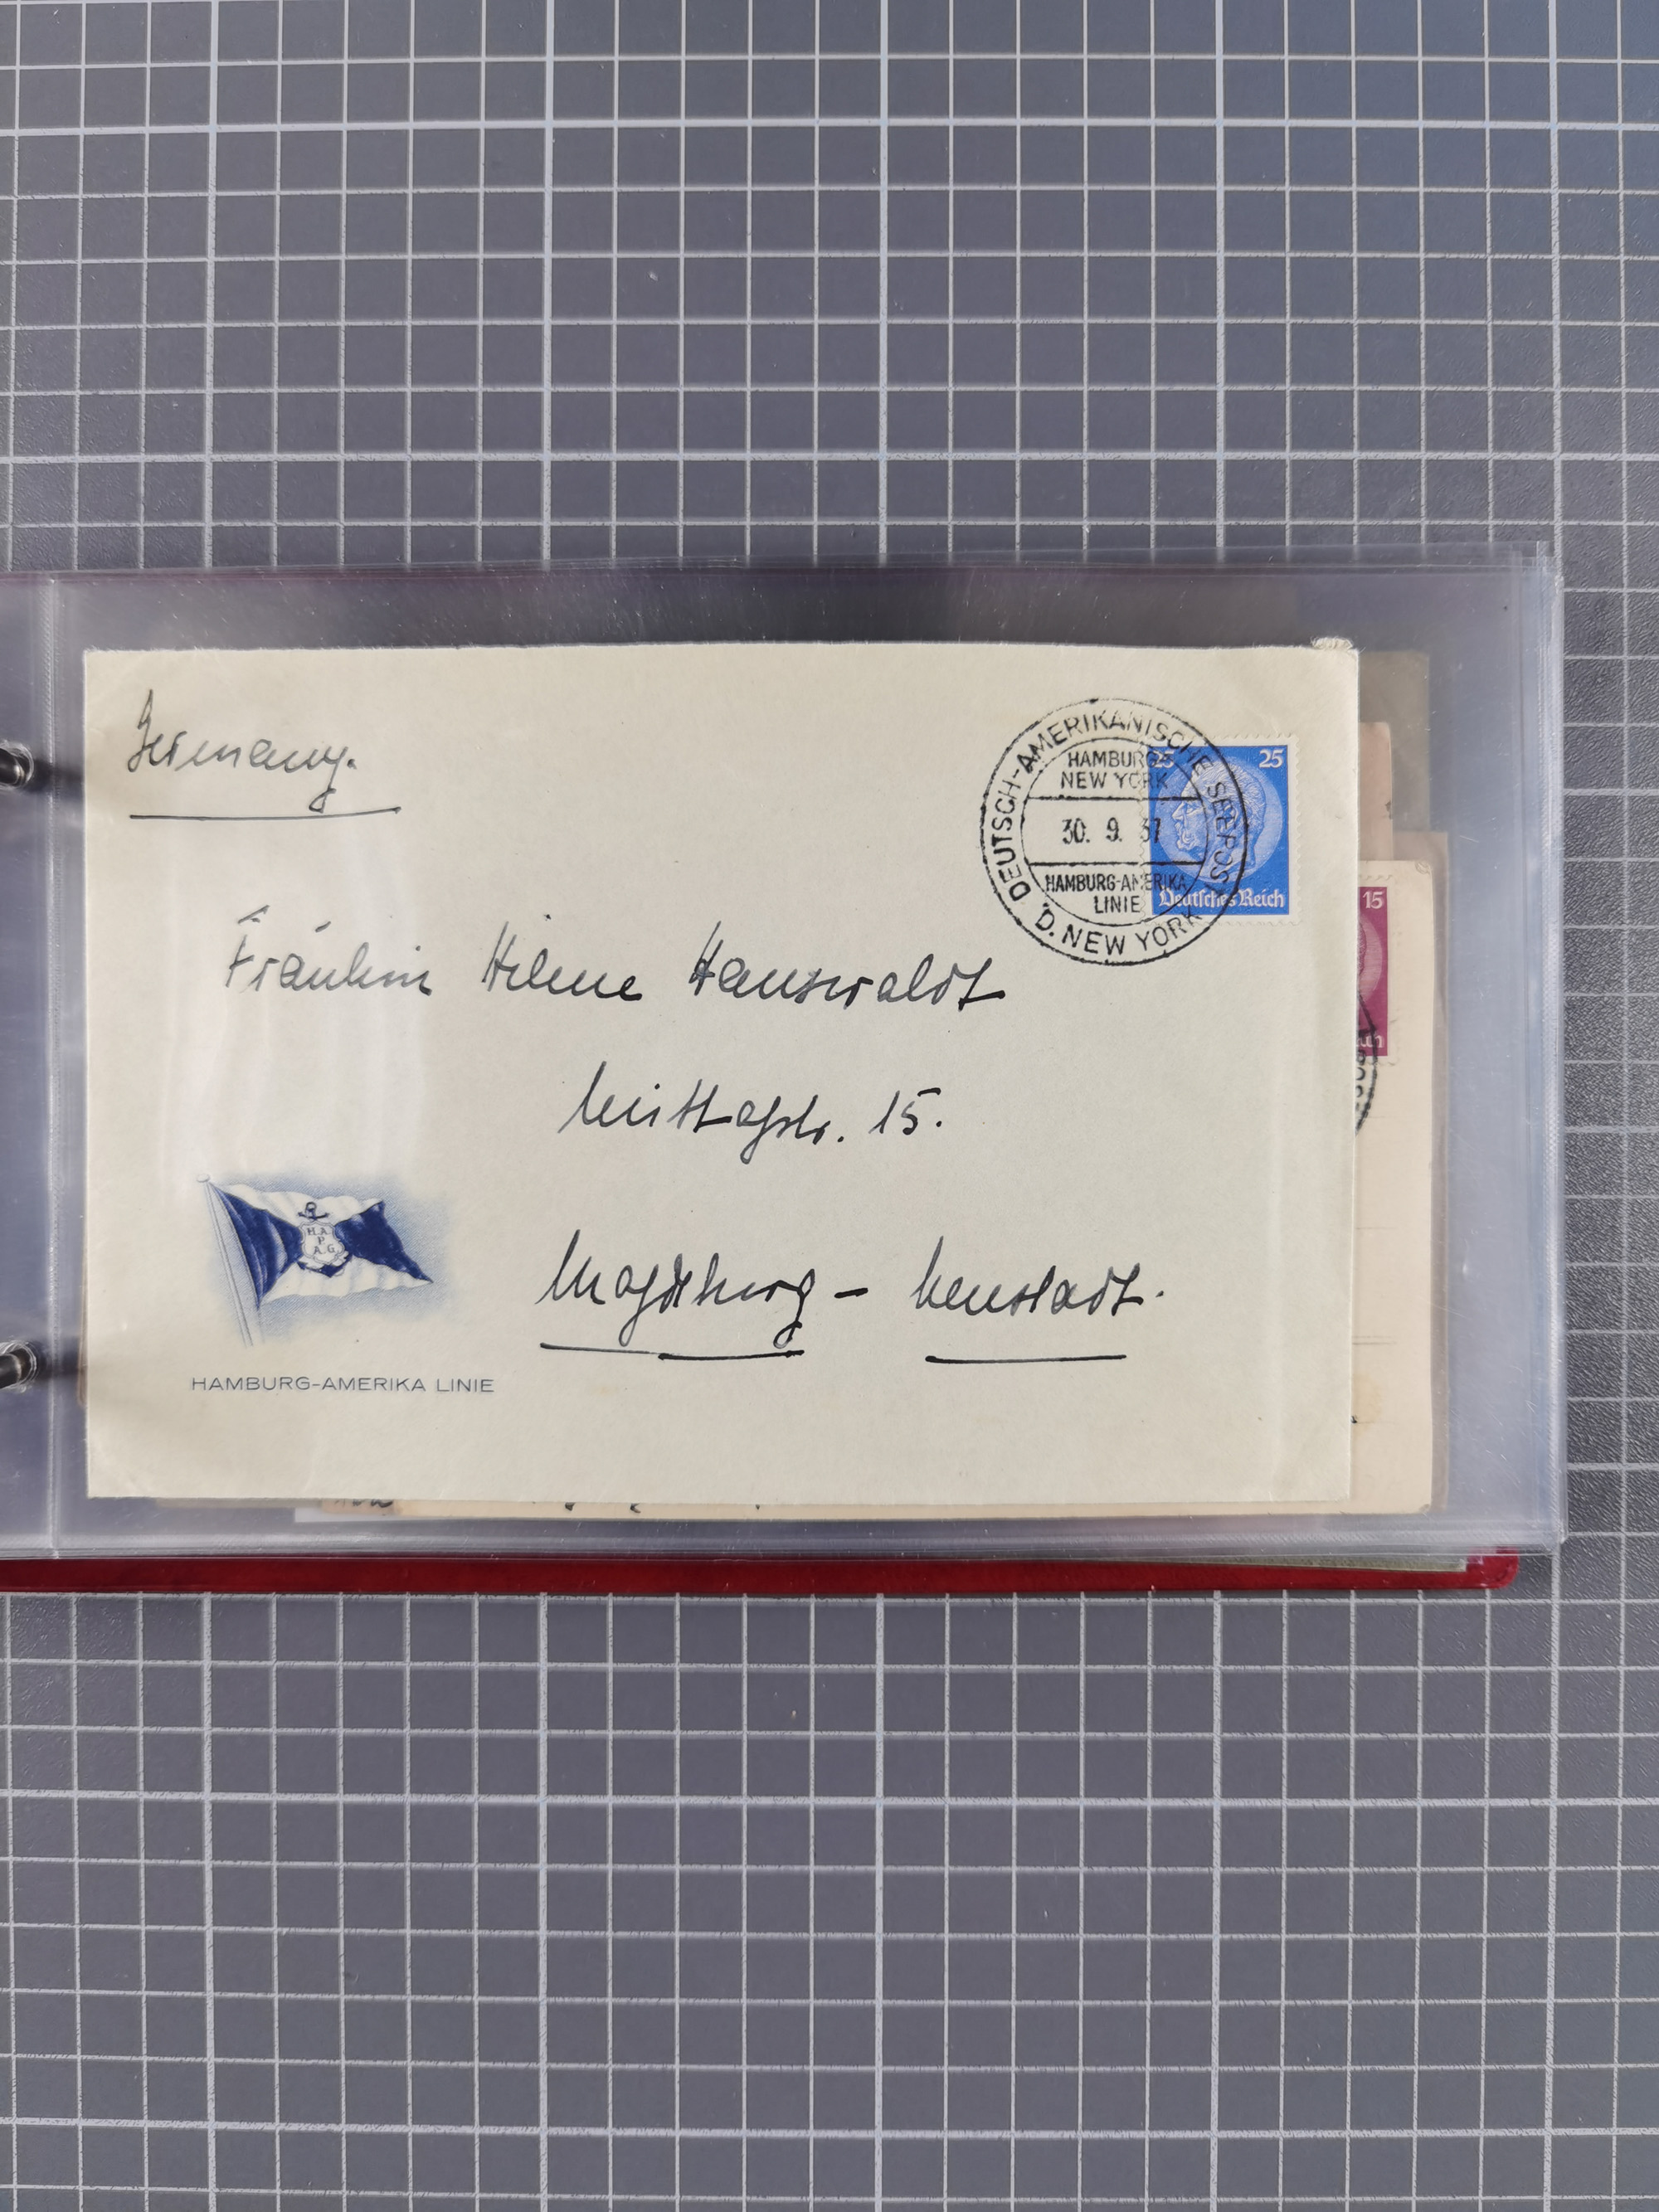 Germany.
DEUTSCH-AMERIKANISCHE SEEPOST
HAMBURG-
NEW YORK
30. 9. 37
HAMBURG-AMERIKA
LINIE
D. NEW YORK
25 25
Deutsches Reich
15
Fräulein Helene Hauswaldt
Mittagstr. 15.
Magdeburg - Neustadt.
H.A.
P.
A.G.
HAMBURG-AMERIKA LINIE